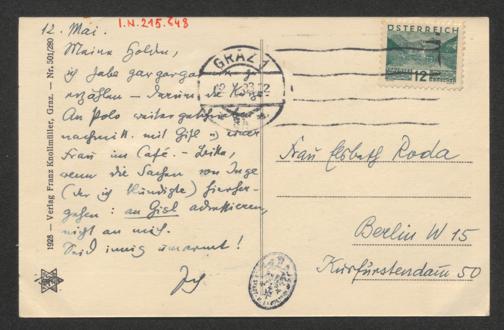 I.N. 215.648
12. Mai.
Meine Holden,
ich habe gar
erzählen – darum die Karte
An Polo weiter
nachmitt. mit Gisl u. einer
Frau im Café. – Bitte,
wenn die Sachen von Inge
(der ich kündigte) hierher-
gehen: an Gisl adressieren,
nicht an mich.
Seid innig umarmt!
Ich
1928 – Verlag Franz Knollmüller, Graz. – Nr. 501/280
GRAZ 1
ÖSTERREICH
12
Frau Elsbeth Roda
Berlin W 15
Kurfürstendam 50